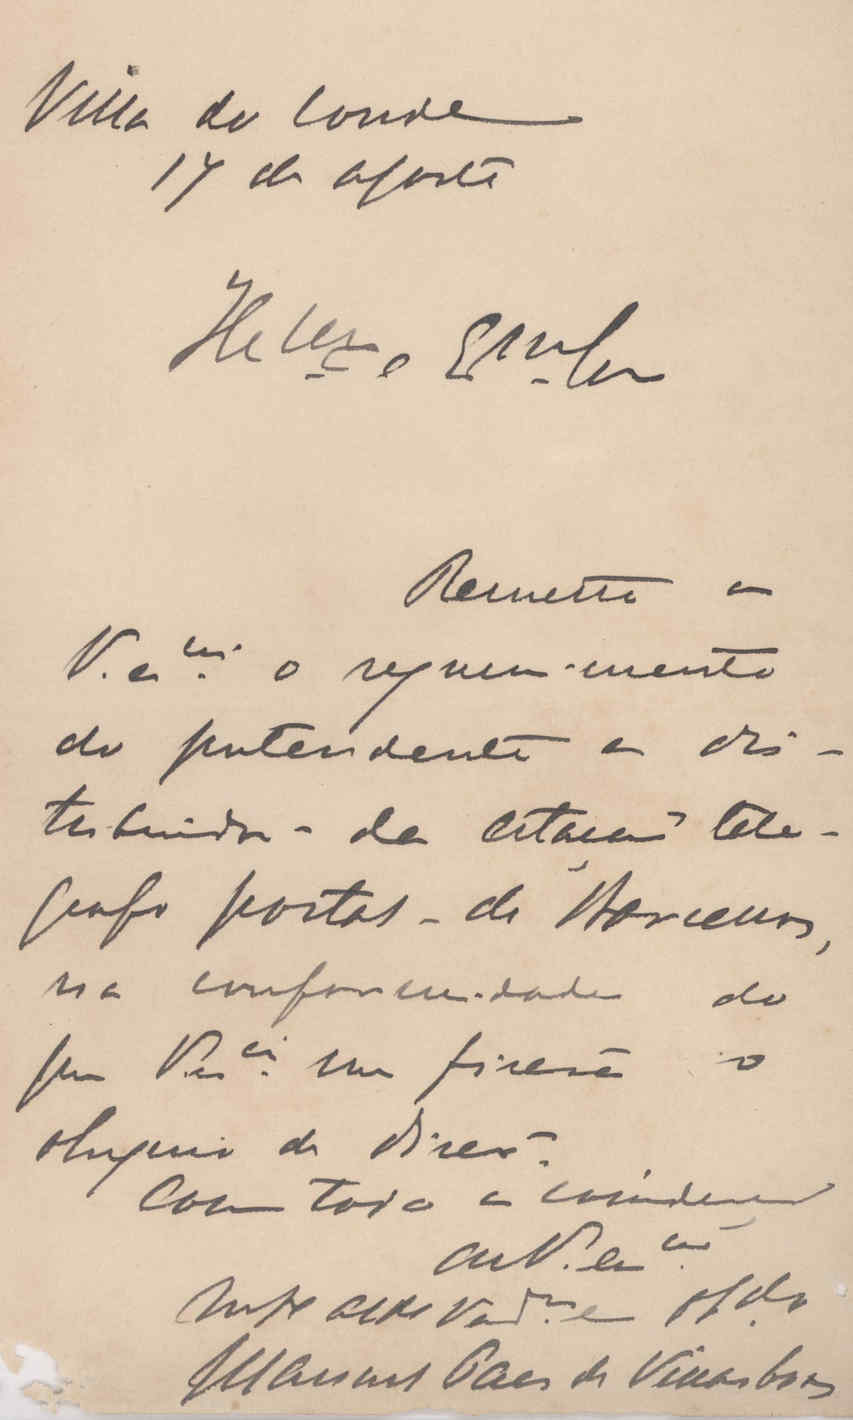 Villa do Conde
17 de agosto
Remetto a
V. Ex.cia o requerimento
do pretendente a dis-
tribuidor da estação tele-
grafo postal de Barcellos,
na conformidade do
que V. Ex.cia me fizera o
obsequio de dizer.
Com toda a consideração
de V. Ex.cia
Manuel Paes de Villasboas